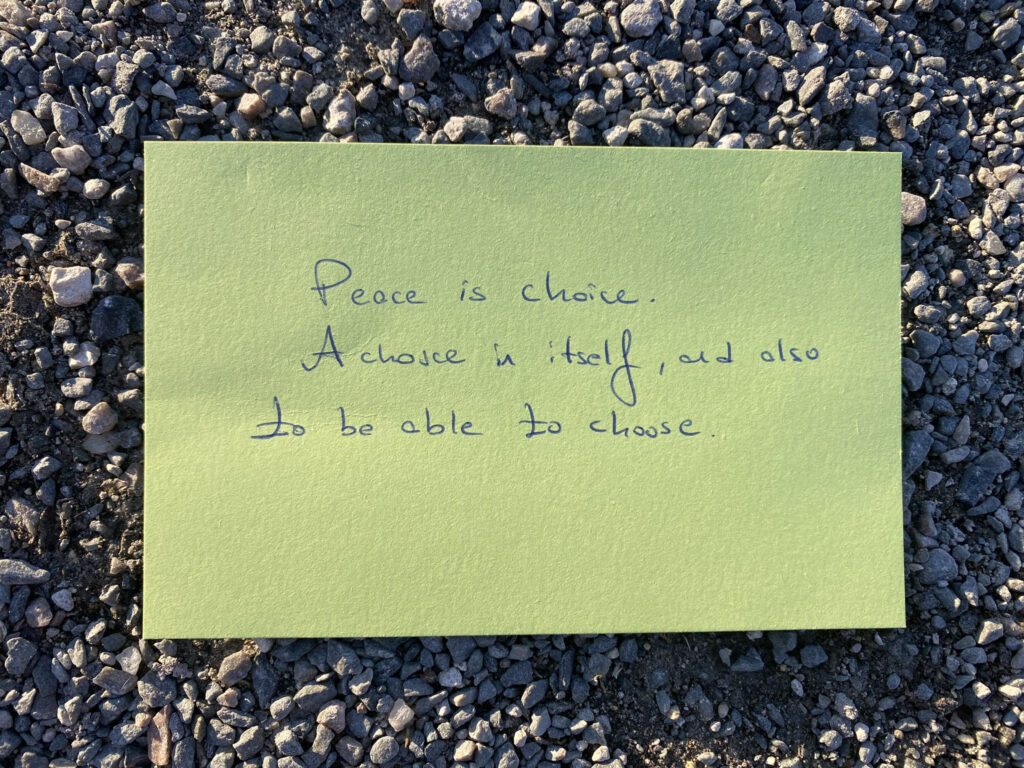 Peace is choice.
A choice in itself, and also
to be able to choose.